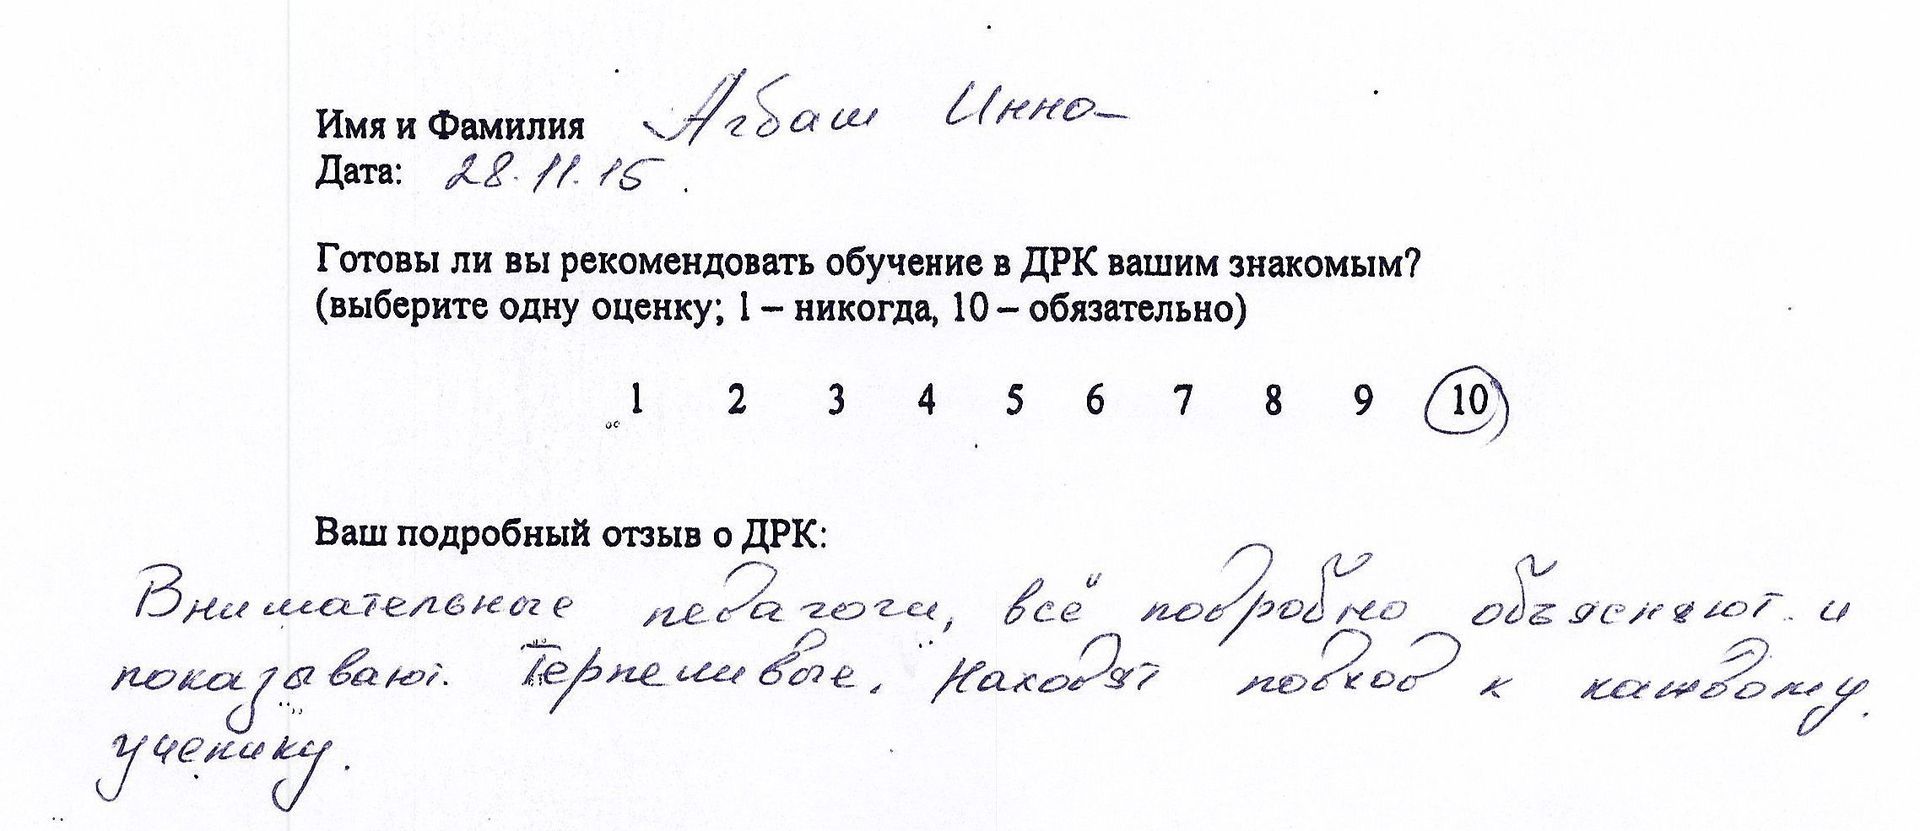 Имя и Фамилия Агбаш Инна
Дата: 28.11.15
Готовы ли вы рекомендовать обучение в ДРК вашим знакомым?
(выберите одну оценку; 1 – никогда, 10 – обязательно)
1 2 3 4 5 6 7 8 9 10
Ваш подробный отзыв о ДРК:
Внимательные педагоги, всё подробно объясняют и
показывают. Терпеливые. Находят подход к каждому
ученику.